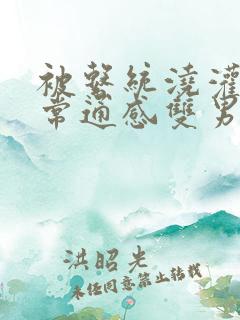 被繫統澆灌
常通感雙男
洪昭光
未经同意禁止转载